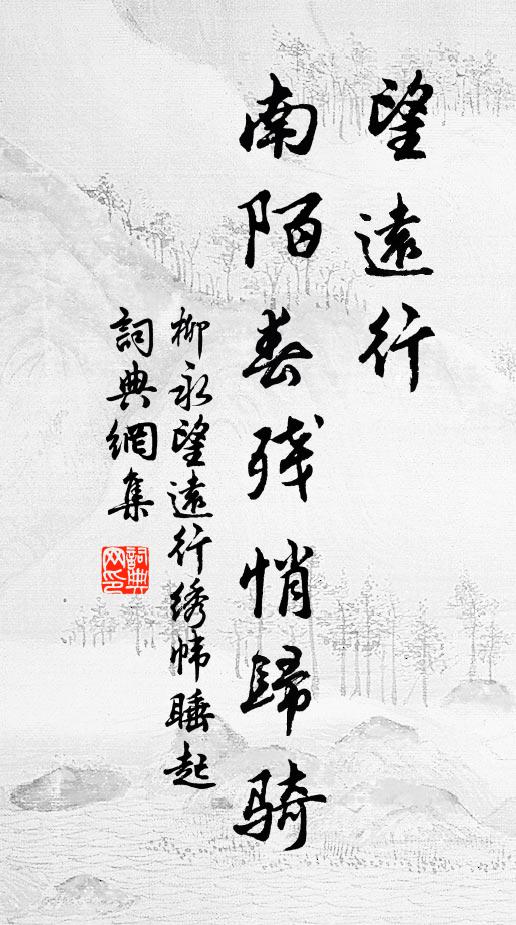 望遠行
南陌春残悄歸骑
柳永望遠行绣帏睡起
詞典網集
詞典网印